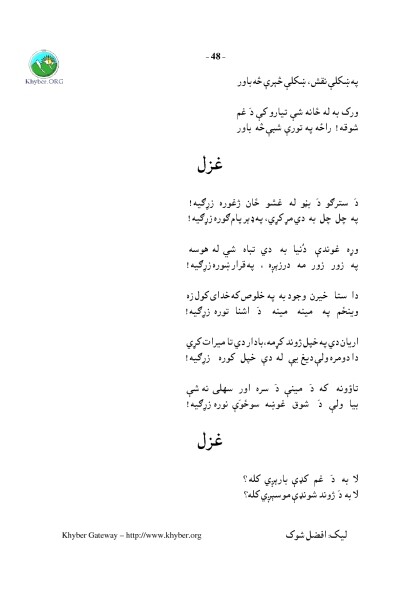 - 48 -
Khyber.ORG
په ښکلې نقش، ښکلې څېرې څه باور
ورک به له ځانه شې تيارو کې دَ غم
شوقه! راځه په تورې شپې څه باور
غزل
دَ سترګو دَ بڼو له غشو ځان ژغوره زړګيه!
په چل چل به دې مړ کړي، په ډېر پام ګوره زړګيه!
وړه غوندې دُنيا به دې تباه شي له هوسه
په زور زور مه درزېږه ، په قرار ښوره زړګيه!
دا ستا خيرن وجود به په خلوص که خدای کول زه
وينځم په مينه مينه دَ اشنا توره زړګيه!
اريان دې په خپل ژوند کړمه، بادار دې تا ميرات کړي
دا دومره ولې ديغ يې له دې خپل کوره زړګيه!
تاؤونه که دَ مينې دَ سره اور سهلی نه شې
بيا ولې دَ شوق غوښه سوځوَې نوره زړګيه!
غزل
لا به دَ غم کډې بارېږي کله؟
لا به دَ ژوند شونډې موسېږي کله؟
Khyber Gateway – http://www.khyber.org
ليک: افضل شوک